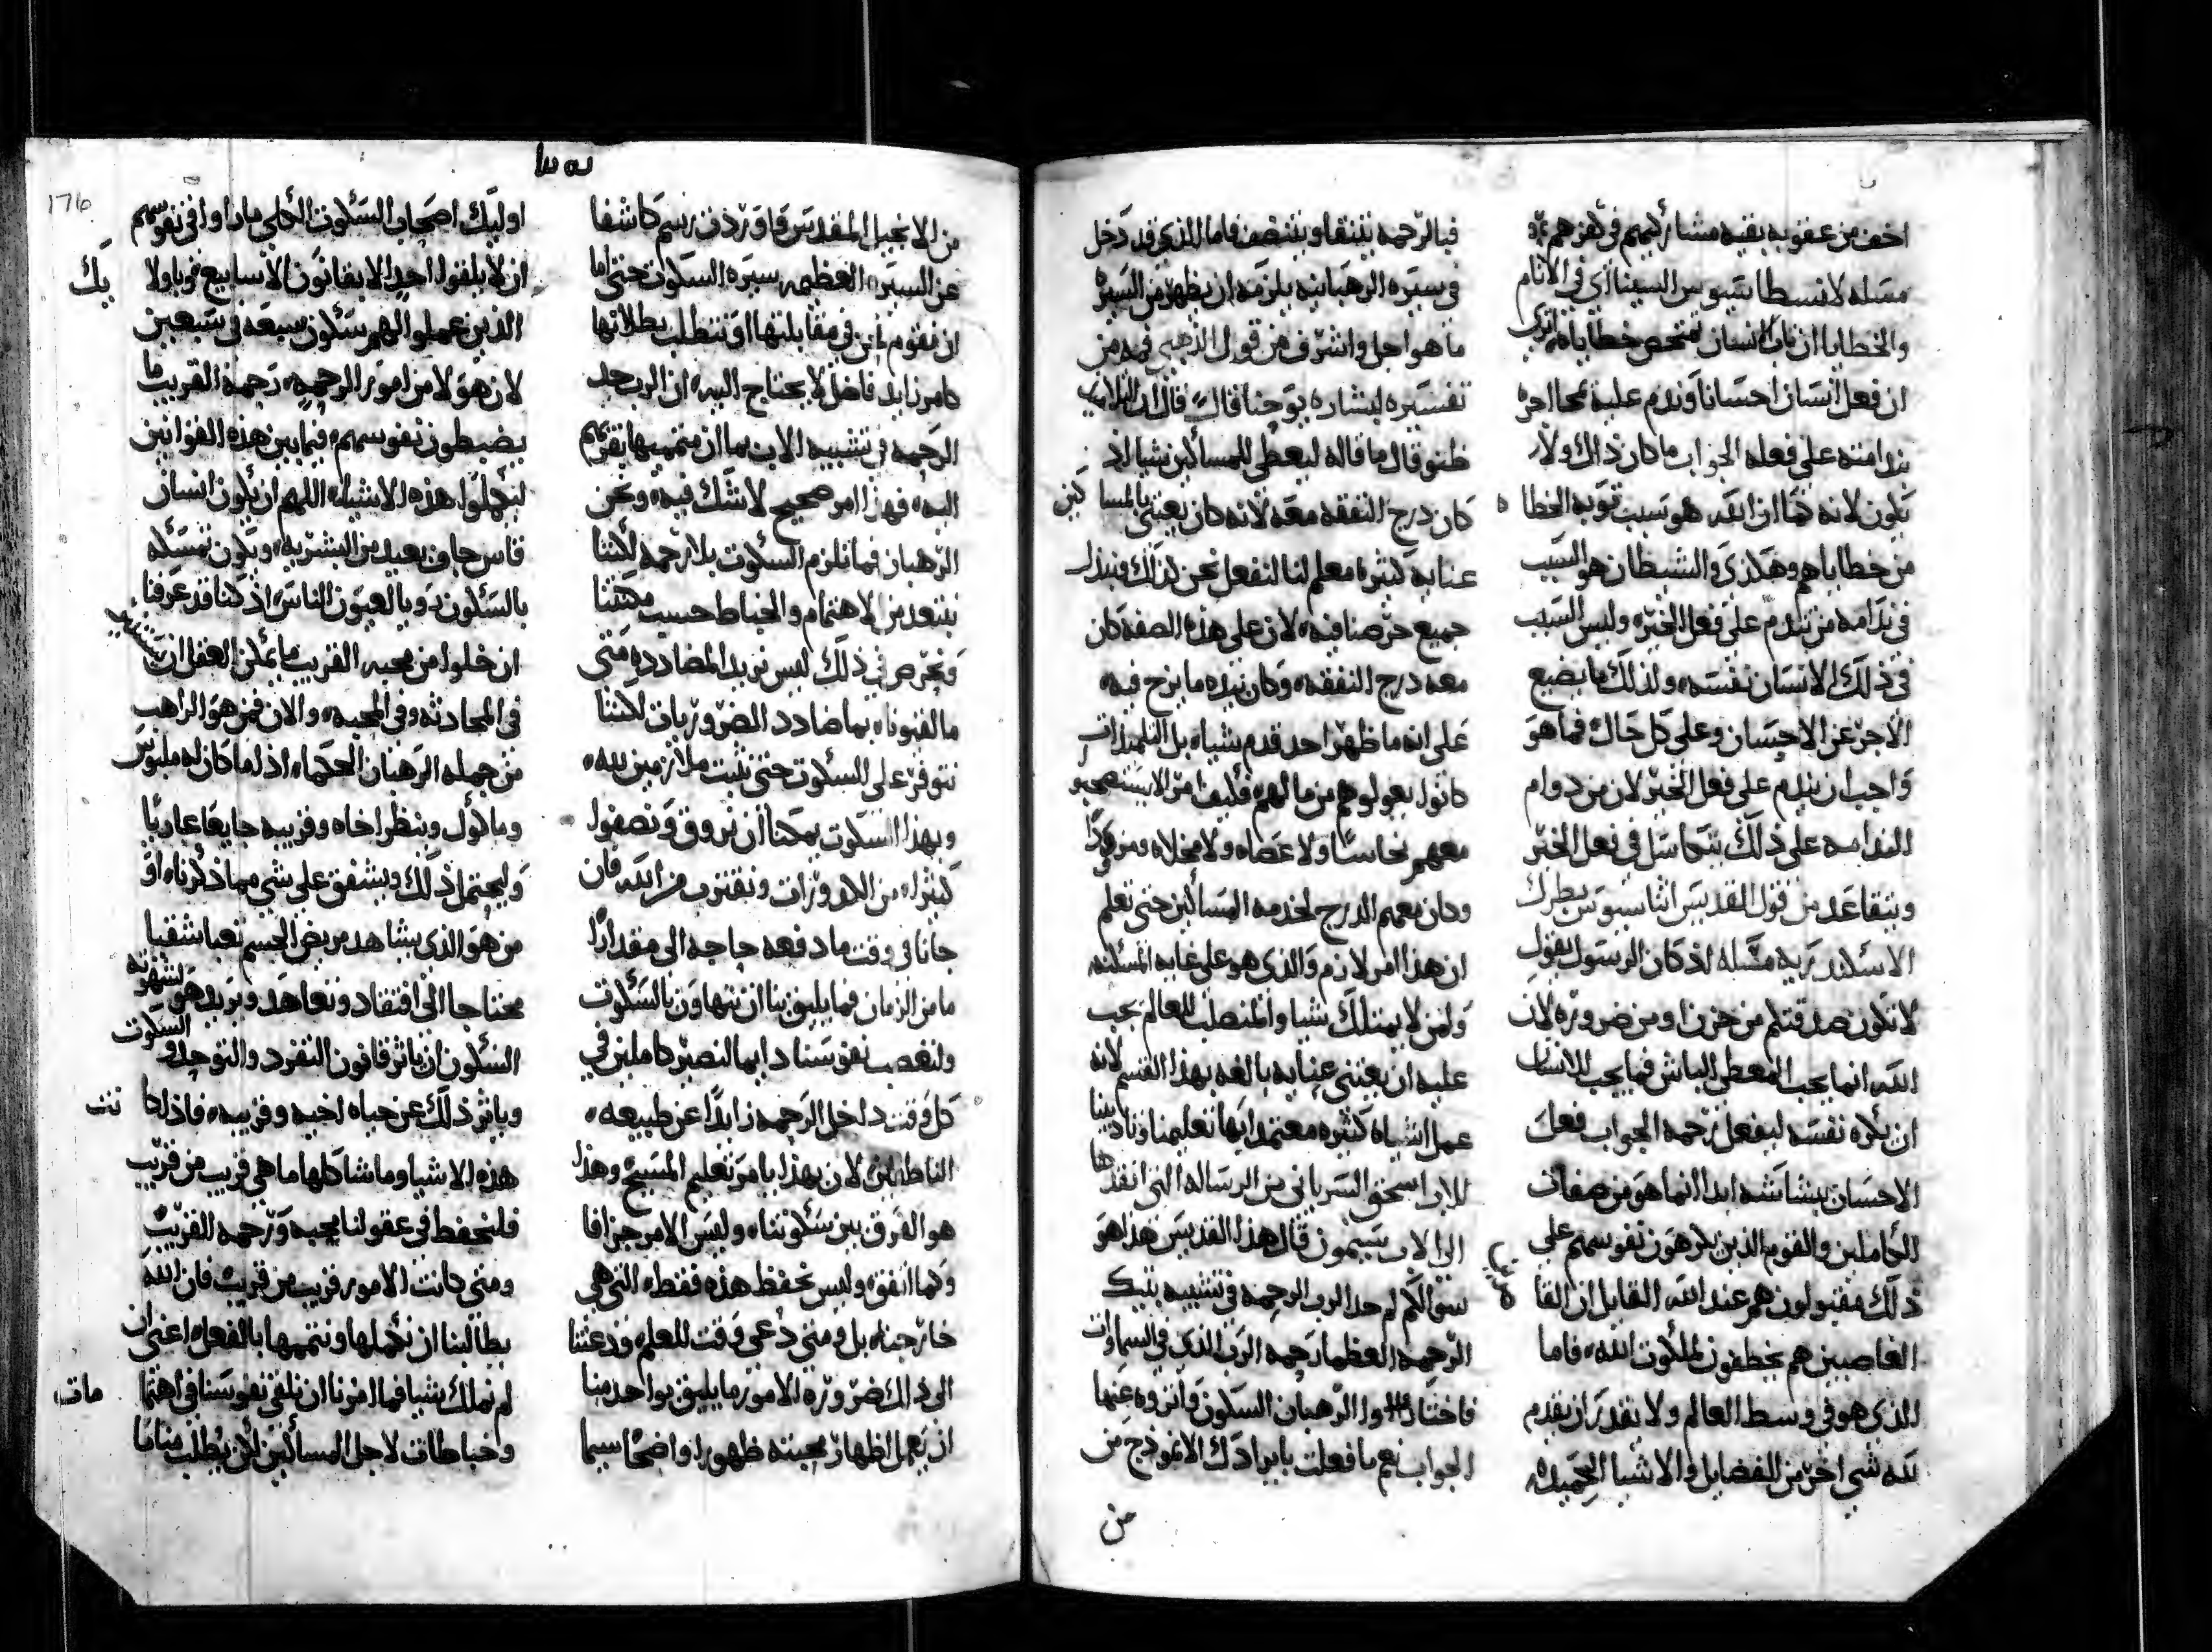 اخف من عقوبه بقيه مشاركيهم في كفرهم
مسله لانسطاسيوس السينااي في الانام
والخطايا ان تاب الانسان تمتحص خطاياه اترى
ان فعل انسان احسانا وندم عليه محا اجره
بندامته على فعله الجواب ما كان ذاك ولا
يكون لانه كما ان الله هو سبب توبه الخطاه
من خطاياهم وهكذى والشيطان هو السبب
في ندامه من يندم على فعل الخير وليس السبب
في ذلك الانسان نفسه ولذلك ما يضيع
الاجر عن الاحسان وعلى كل حال فما هو
واجب ان يندم على فعل الخير لان من دوام
الندامه على ذلك يتكاسل في فعل الخير
ويتقاعد من قول القديس اثناسيوس بطرك
الاسكندريه مسله اذ كان الرسول يقول
لا تكون صدقتكم من حزن او من ضروره لان
الله انما يحب المعطي الباش فما يجب للانسان
ان يكره نفسه ليفعل رحمه الجواب فعل
الاحسان ببشاشه ابدا انما هو من صفات
الكاملين والقوم الذين يكرهون نفوسهم على
ذلك مقبولون هم عند الله القايل ان القا
الغاصبين هم يخطفون ملكوت الله فاما
الذي هو في وسط العالم ولا يقدر ان يقدم
لله شي اخر من الفضايل والاشيا الحميده
فبالرحمه يتنقا ويتنضف فاما الذي قد دخل
في سيره الرهبانيه يلزمه ان يظهر من السيره
ما هو اجل واشرف من قول الذهبي فمه من
تفسيره لبشاره يوحنا قال قال ان التلاميذ
ظنو قال ما قاله ليعطي للمساكين شيا اذ
كان درج النفقه معه لانه كان يعتني بالمساكين
عنايه كثيره معلم لنا لنفعل نحن كذلك ونبذل
جميع حرصنا فيه لان على هذه الصفه كان
معه درج النفقه وكان بيده ما يزح فيه
على انه ما ظهر احد قدم شياه بل التلميذات
كانوا يعولوهم من مالهم فكيف امر الا يستصحبو
معهم نحاسا ولا عصاه ولا مخلاه ومزودا
وكان معهم الدرج لخدمه المساكين حتى تعلم
ان هذا امر لازم والذي هو على غايه المسكنه
ولمن لا يمتلك شيا والمنصلب للعالم يجب
عليه ان يعتني عنايه بالغه بهذا القسم لانه
عمل اشياه كثيره معتمدا بها تعليمنا وتاديبنا
للاب اسحق السرياني من الرساله التي انفذها
الى الاب سيمون قال هذا القديس هذا هو
سوالكم لم حد الرب الرحمه في تشبيه بتيك
الرحمه العظما رحمه الرب الذي في السماوات
فاختاروا الرهبان السكون واثروه عنها
الجواب نعم ما فعلت بايرادك الانموذج من
من
من الانجيل المقدس فاورد في رسم كاشفا
عن السيره العظيمه سيره السكوت حتى اما
ان نقوم نحن في مقابلتها او نتطلب بطلانها
كامر زايد فاضل لا يحتاج اليه ان الرب حد
الرحمه في تشبيه الاب بما ان متممها يقومهم
اليه فهذا امر صحيح لا شك فيه ونحن
الرهبان فما نلزم السكوت بلا رحمه لكننا
نبتعد من الاهتمام والخباط حسب مكنتنا
ونحرص في ذلك ليس نريد المضادده متى
ما لقيوناه بما ضادد الضروريات لكننا
نتوفر على السكوت حتى نثبت ملازمين لله
وبهذا السكوت يمكننا ان نروق ونصفوا
كثيرا من الكدورات ونقترب من الله فان
جانا في وقت ما دفعه حاجه الى مقدارا
ما من الزمان فما يليق بنا ان نتهاون بالسكوت
ولنغصب نفوسنا دايما لنصير كاملين في
كل وقت داخل الرحمه زايدا عن طبيعه
الناطقين لان بهذا يامر تعليم المسيح وهذا
هو الفرق بين سكوتنا وليس الامر جزافا
وكما اتفق وليس نحفظ هذه فقط التي هي
خارجنا بل ومتى دعى وقت للعلم ودعتنا
الى ذلك ضروره الامور ما يليق بواحد منا
ان يهمل اظهار محبته ظهورا واضحا سيما
اوليك اصحاب السكوت الكلي ما راوا في نفوسهم
ان لا يلقوا احد الا بقانون الاسابيع نحو باولايك
الذين عملوا لهم سكون سبعه في سبعين
لان هولا من امور الرحمه رحمه القريب ما
يضبطون نفوسهم فيما بين هذه القوانين
ليهملوا هذه الاشياء اللهم ان يكون انسان
قاس جاف بعيد من البشريه ويكون تمسكه
بالسكون نحو بالعيون الناس اذ كنا قد عرفنا
ان خلوا من محبه القريب ما يمكن العقل ان يستنير
في المحادثه وفي المحبه والان فمن هو الراهب
من جمله الرهبان الحكماء اذا ما كان له ملبوس
وماكول وينظر اخاه وقريبه جايعا عاريا
وليحتمل ذلك ويشفق على شي مما ذكرناه او
من هو الذي يشاهد مريض الجسم تعبا شقيا
محتاجا الى افتقاد وتعاهد ويريد هو لشهوته
السكون ان ياثر قانون التفرد والتوحد والسكوت
وياثر ذلك عن حياه اخيه وقريبه فاذا كانت
هذه الاشيا وما شاكلها ما هي قريب من قريب
فلنحفظ في عقولنا محبه ورحمه القريب
ومتى كانت الامور قريب من قريب فان الله
يطالبنا ان نكملها ونتممها بالفعل اعني ان
لم نملك شيا فما امرنا ان نلقي نفوسنا في اهتمامات
وخباطات لاجل المساكين لان يطلب منا ما
176